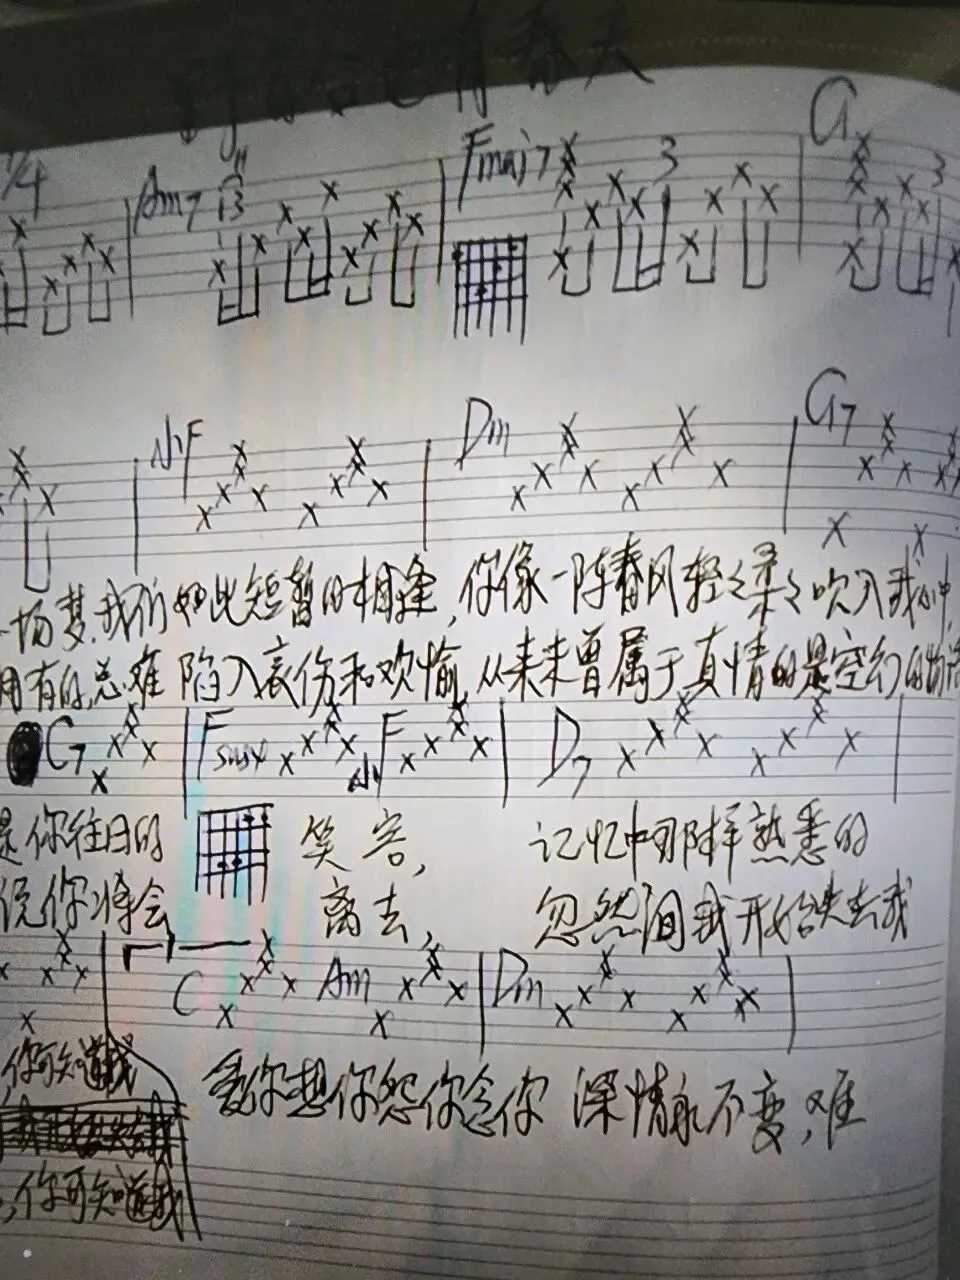 野百合也有春天
1/4 Am7 Fmaj7 3 G 3
小F Dm G7
场梦,我们如此短暂的相逢,你像一阵春风轻轻柔柔吹入我心中,
拥有的,总难 陷入哀伤和欢愉,从来未曾属于真情的是空幻的
G7 Fsus4 小F D7
是你往日的 笑容, 记忆中那样熟悉的
说你将会 离去, 忽然间我开始失去我
C Am Dm
你可知道我 爱你想你怨你念你 深情永不变,难
,你可知道我